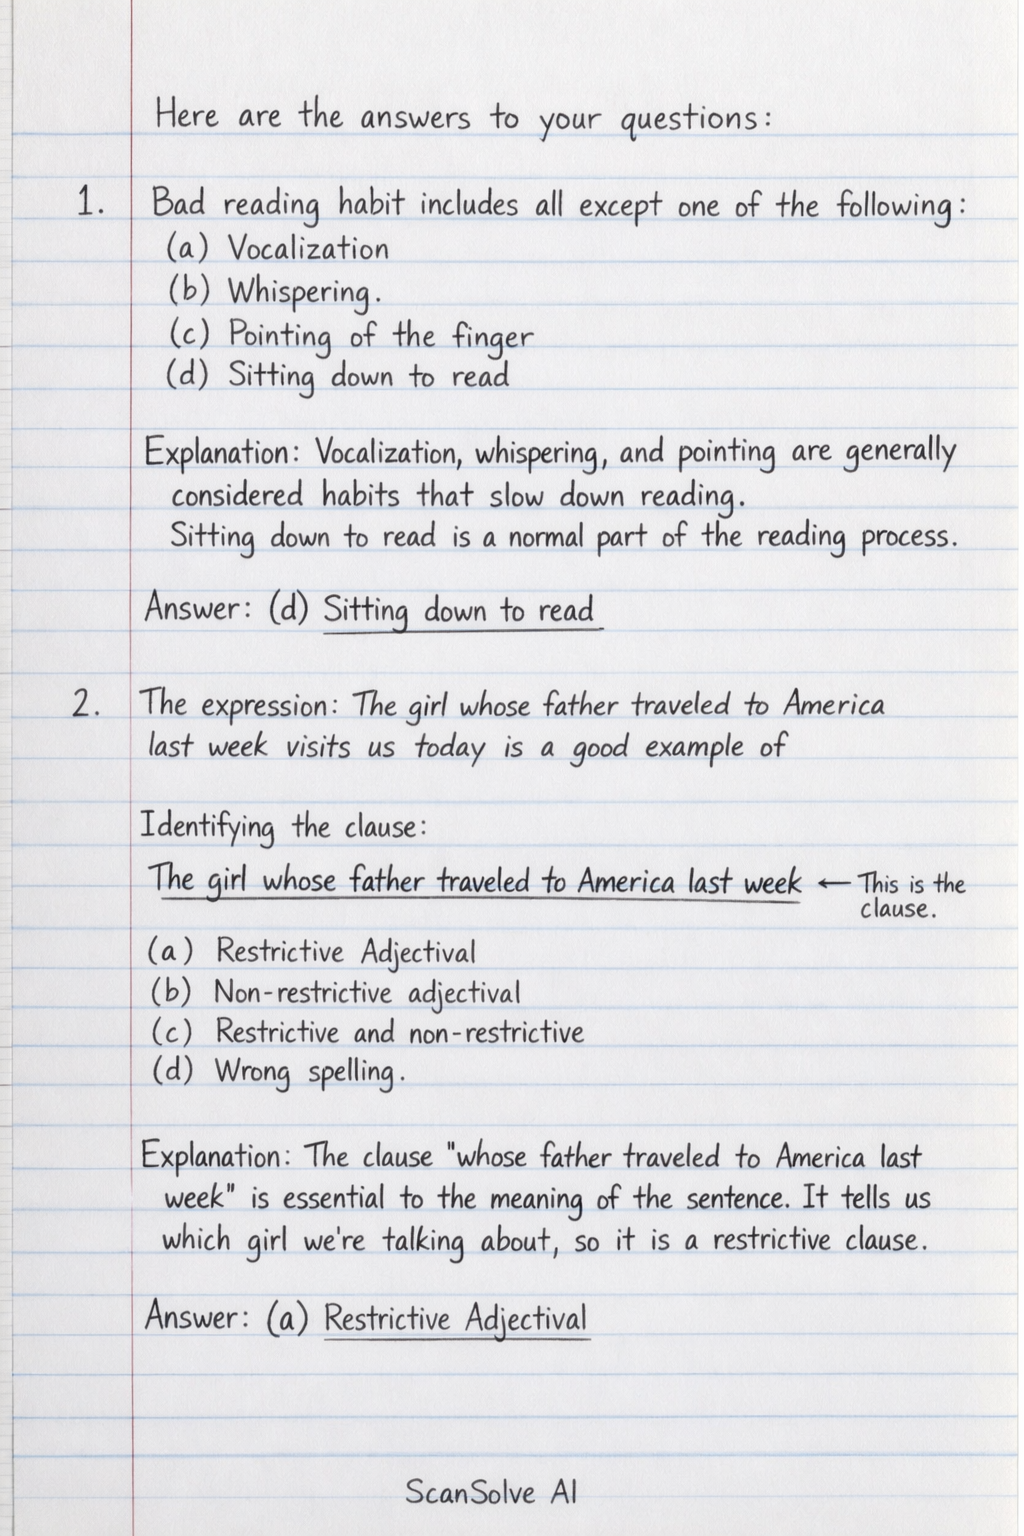 Here are the answers to your questions:
1. Bad reading habit includes all except one of the following:
(a) Vocalization
(b) Whispering.
(c) Pointing of the finger
(d) Sitting down to read
Explanation: Vocalization, whispering, and pointing are generally
considered habits that slow down reading.
Sitting down to read is a normal part of the reading process.
Answer: (d) Sitting down to read
2. The expression: The girl whose father traveled to America
last week visits us today is a good example of
Identifying the clause:
The girl whose father traveled to America last week ← This is the
clause.
(a) Restrictive Adjectival
(b) Non-restrictive adjectival
(c) Restrictive and non-restrictive
(d) Wrong spelling.
Explanation: The clause "whose father traveled to America last
week" is essential to the meaning of the sentence. It tells us
which girl we're talking about, so it is a restrictive clause.
Answer: (a) Restrictive Adjectival
ScanSolve AI